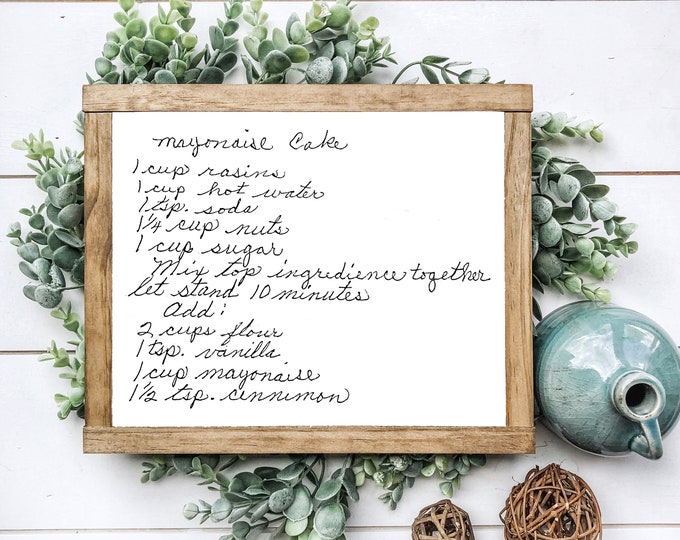 mayonaise Cake
1 cup rasins
1 cup hot water
1 tsp. soda
1¼ cup nuts
1 cup sugar
Mix top ingredience together
let stand 10 minutes
Add:
2 cups flour
1 tsp. vanilla
1 cup mayonaise
1½ tsp. cinnimon